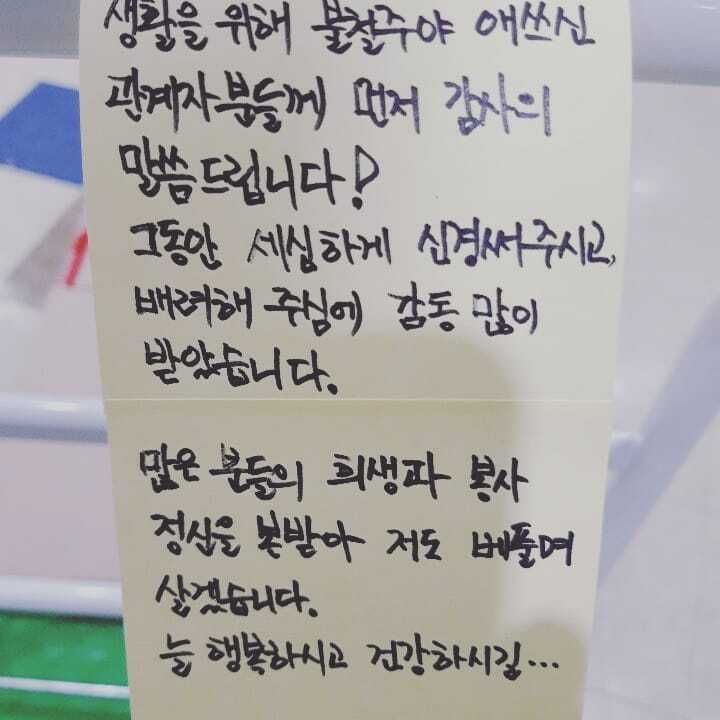 생활을 위해 불철주야 애쓰신
관계자분들께 먼저 감사의
말씀드립니다!
그동안 세심하게 신경써주시고,
배려해 주심에 감동 많이
받았습니다.
많은 분들의 희생과 봉사
정신을 본받아 저도 베풀며
살겠습니다.
늘 행복하시고 건강하시길...